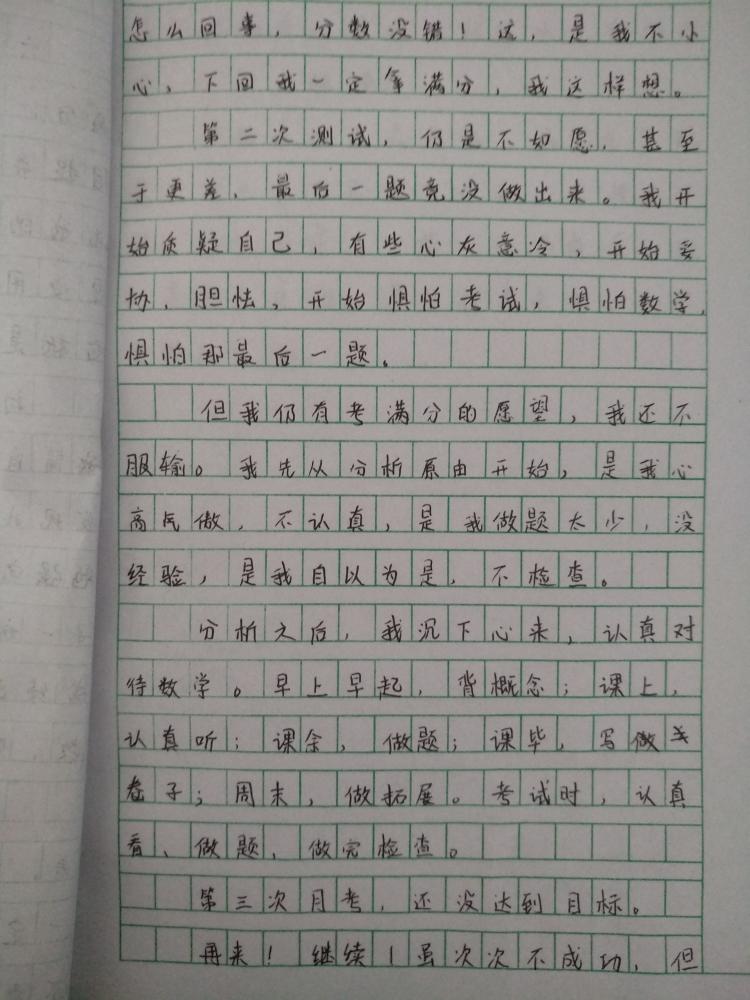 怎么回事，分数没错！这，是我不小
心，下回我一定争满分，我这样想。
第二次测试，仍是不如愿，甚至
于更差，最后一题竟没做出来。我开
始质疑自己，有些心灰意冷，开始妥
协、胆怯，开始惧怕考试，惧怕数学，
惧怕那最后一题。
但我仍有考满分的愿望，我还不
服输。我先从分析原由开始，是我心
高气傲，不认真，是我做题太少，没
经验，是我自以为是，不检查。
分析之后，我沉下心来，认真对
待数学。早上早起，背概念；课上，
认真听；课余，做题；课毕，写做
卷子；周末，做拓展。考试时，认真
看、做题，做完检查。
第三次月考，还没达到目标。
再来！继续！虽次次不成功，但